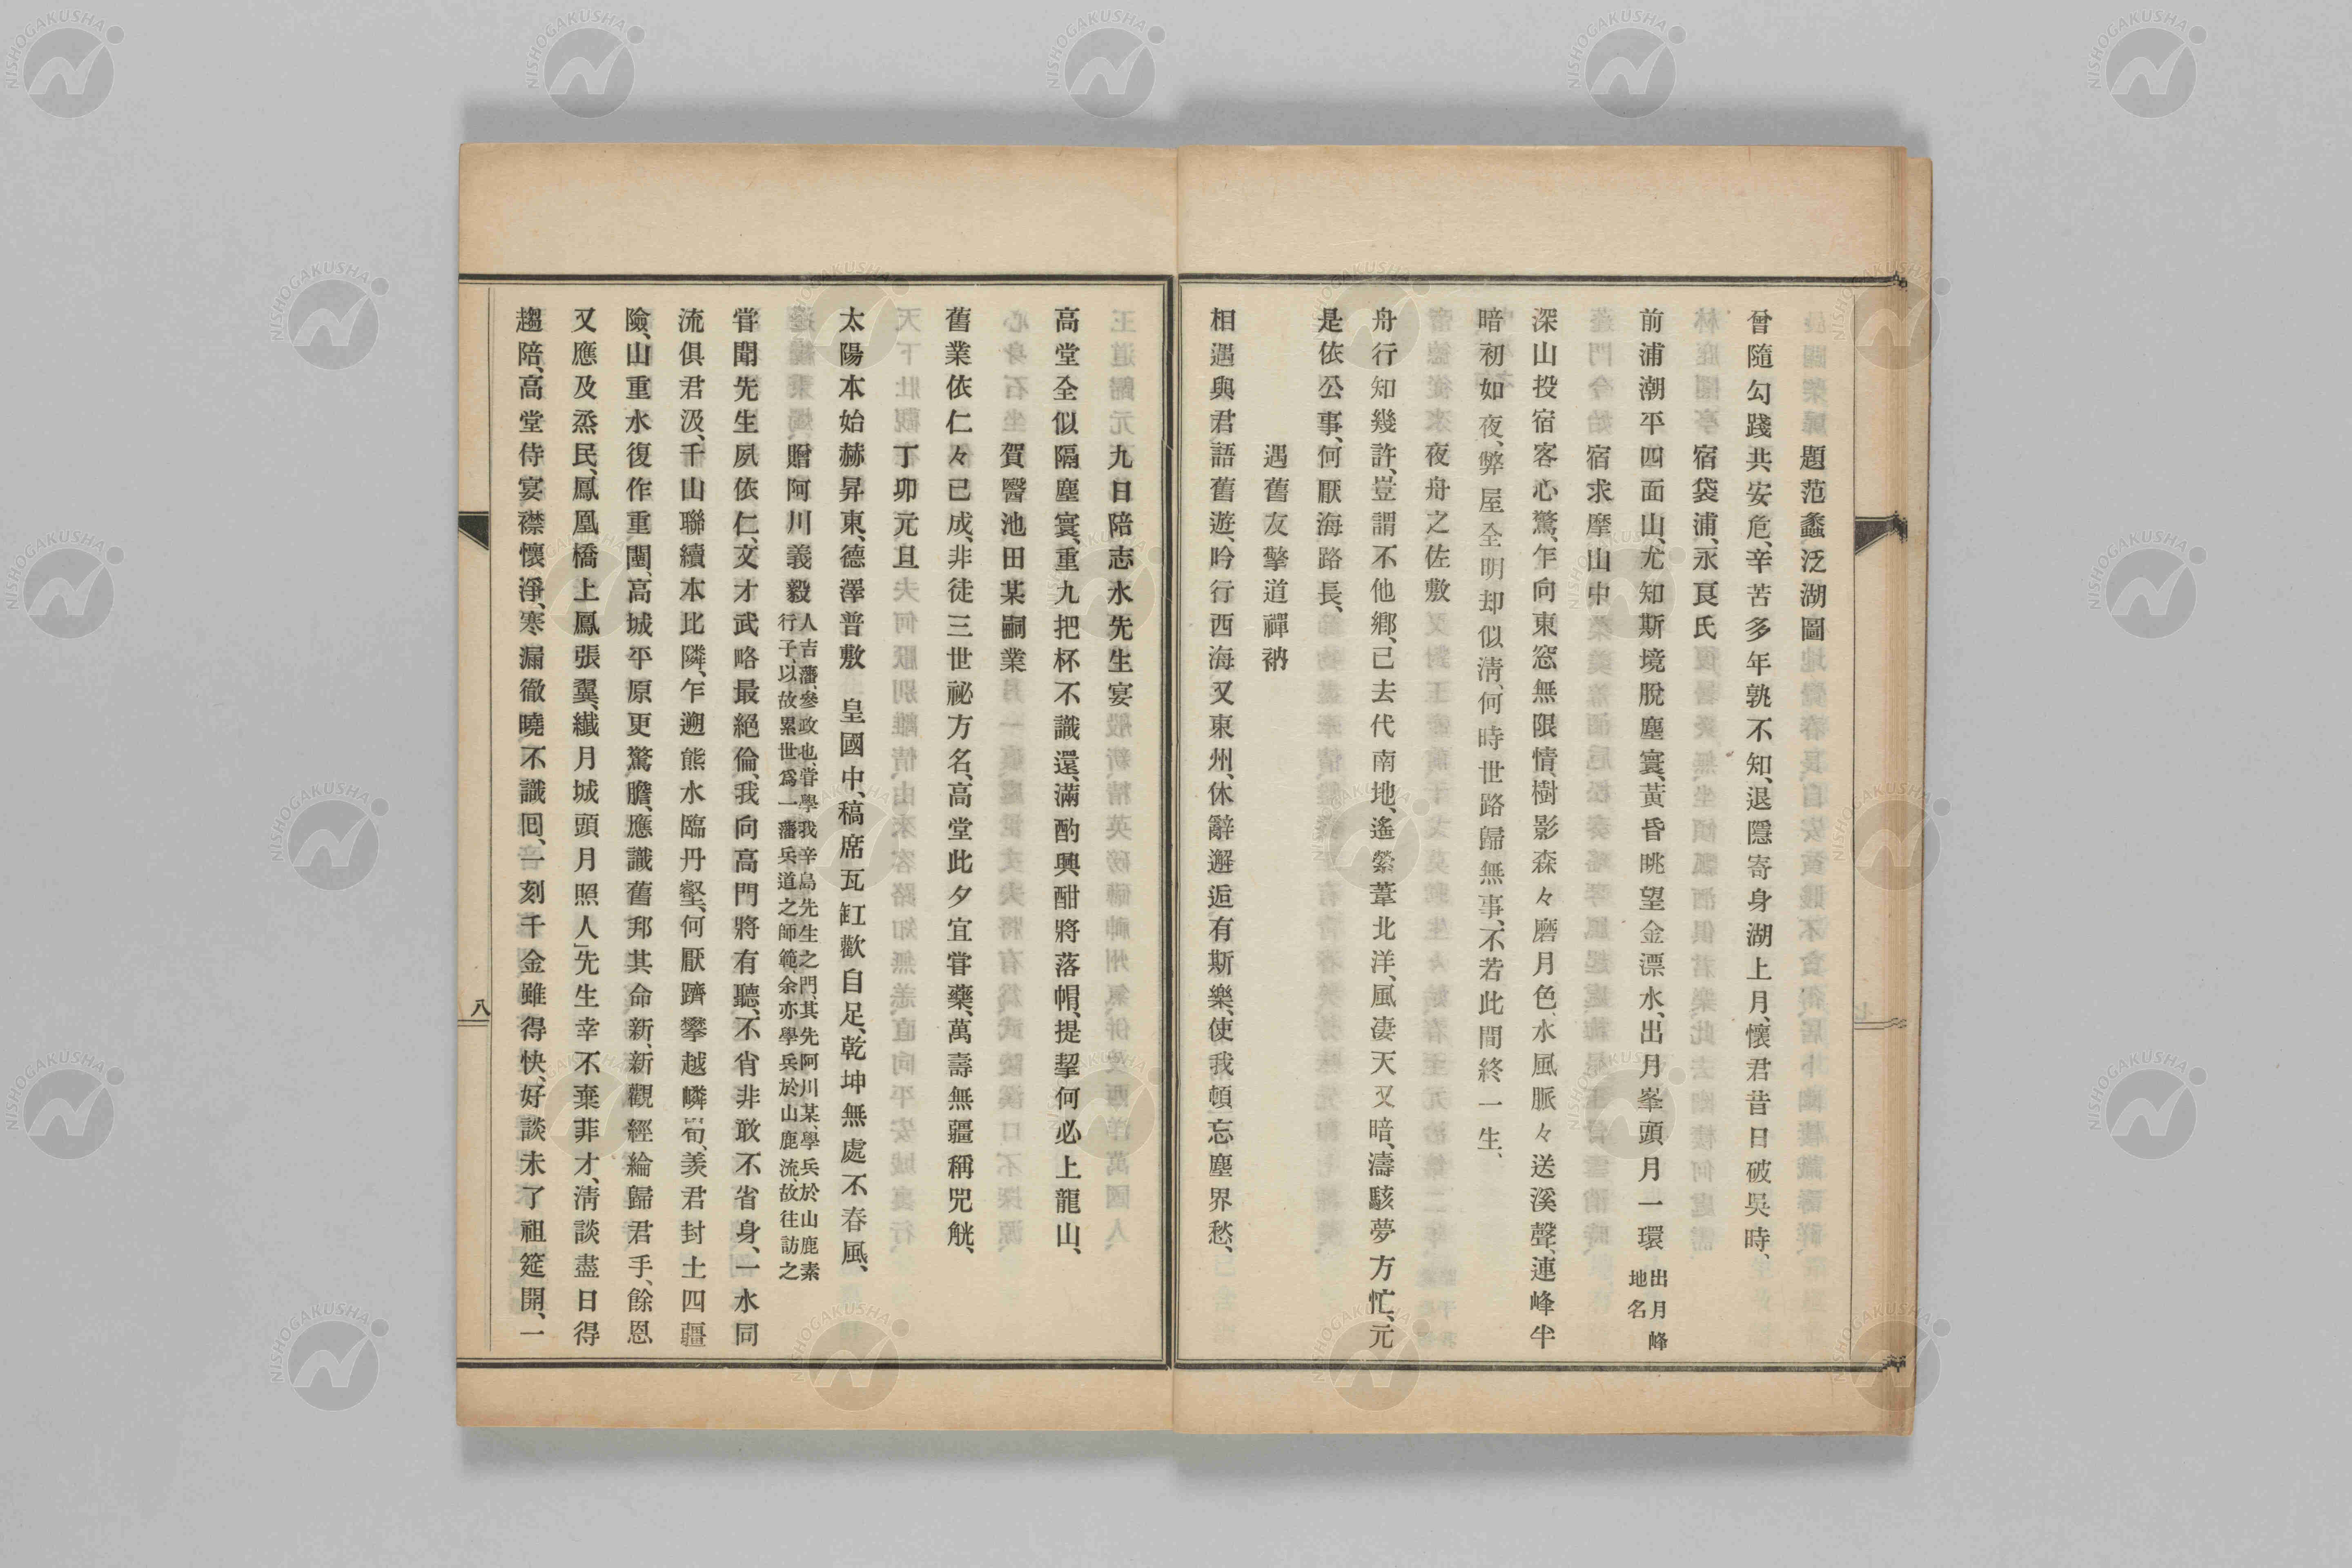 題范蠡泛湖圖
曾隨勾踐共安危、辛苦多年孰不知、退隱寄身湖上月、懷君昔日破吳時、
宿袋浦、永良氏
前浦潮平四面山、尤知斯境脫塵寰、黃昏眺望金漂水、出月峯頭月一環 出月峰地名
宿求摩山中
深山投宿客心驚、年向東窓無限情、樹影森々磨月色、水風脈々送溪聲、連峰半
暗初如夜、弊屋全明却似淸、何時世路歸無事、不若此間終一生、
夜舟之佐敷
舟行知幾許、豈謂不他鄕、已去代南地、遙縈葦北洋、風淒天又暗、濤駭夢方忙、元
是依公事、何厭海路長、
遇舊友擎道禪衲
相遇與君語舊遊、吟行西海又東州、休辭邂逅有斯樂、使我頓忘塵界愁、
九日陪志水先生宴
高堂全似隔塵寰、重九把杯不識還、滿酌興酣將落帽、提挈何必上龍山、
賀醫池田某嗣業
舊業依仁々已成、非徒三世祕方名、高堂此夕宜嘗藥、萬壽無疆稱兕觥、
丁卯元旦
太陽本始赫昇東、德澤普敷 皇國中、稿席瓦缸歡自足、乾坤無處不春風、
贈阿川義毅 人吉藩、參政也、嘗學我辛島先生之門、其先阿川某、學兵於山鹿素
行子、以故累世爲一藩兵道之師範、余亦學兵於山鹿流、故往訪之
嘗聞先生夙依仁、文才武略最絕倫、我向高門將有聽、不省非敢不省身、一水同
流俱君汲、千山聯續本比隣、乍遡熊水臨丹壑、何厭躋攀越嶙峋、羨君封土四疆
險、山重水復作重闉、高城平原更驚膽、應識舊邦其命新、新觀經綸歸君手、餘恩
又應及烝民、鳳凰橋上鳳張翼、纖月城頭月照人」先生幸不棄菲才、淸談盡日得
趨陪、高堂侍宴襟懷淨、寒漏徹曉不識回、一刻千金雖得快、好談未了祖筵開、一
八
NISHOGAKUSHA